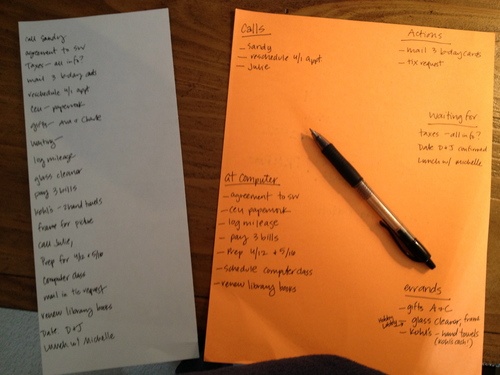 Call Sandy
agreement to SW
Taxes - all info?
mail 3 bday cards
reschedule 4/1 appt
CEU - paperwork
gifts - Ava + Charlie
Waiting -
log mileage
glass cleaner
pay 3 bills
Kohl's - hand towels
frame for picture
Call Julie
Prep for 4/12 + 5/16
Computer class
mail in tic request
renew library books
Date D+J
Lunch w/ Michelle
Calls
- Sandy
- reschedule 4/1 appt
- Julie
Actions
- mail 3 bday cards
- tic request
Waiting for
taxes - all info?
Date D+J confirmed
Lunch w/ Michelle
at Computer
- agreement to SW
- CEU paperwork
- log mileage
- pay 3 bills
- Prep 4/12 + 5/16
- schedule computer class
- renew library books
errands
- gifts A+C
Hobby Lobby glass cleaner, frame
- Kohl's - hand towels
(Kohl's cash!)